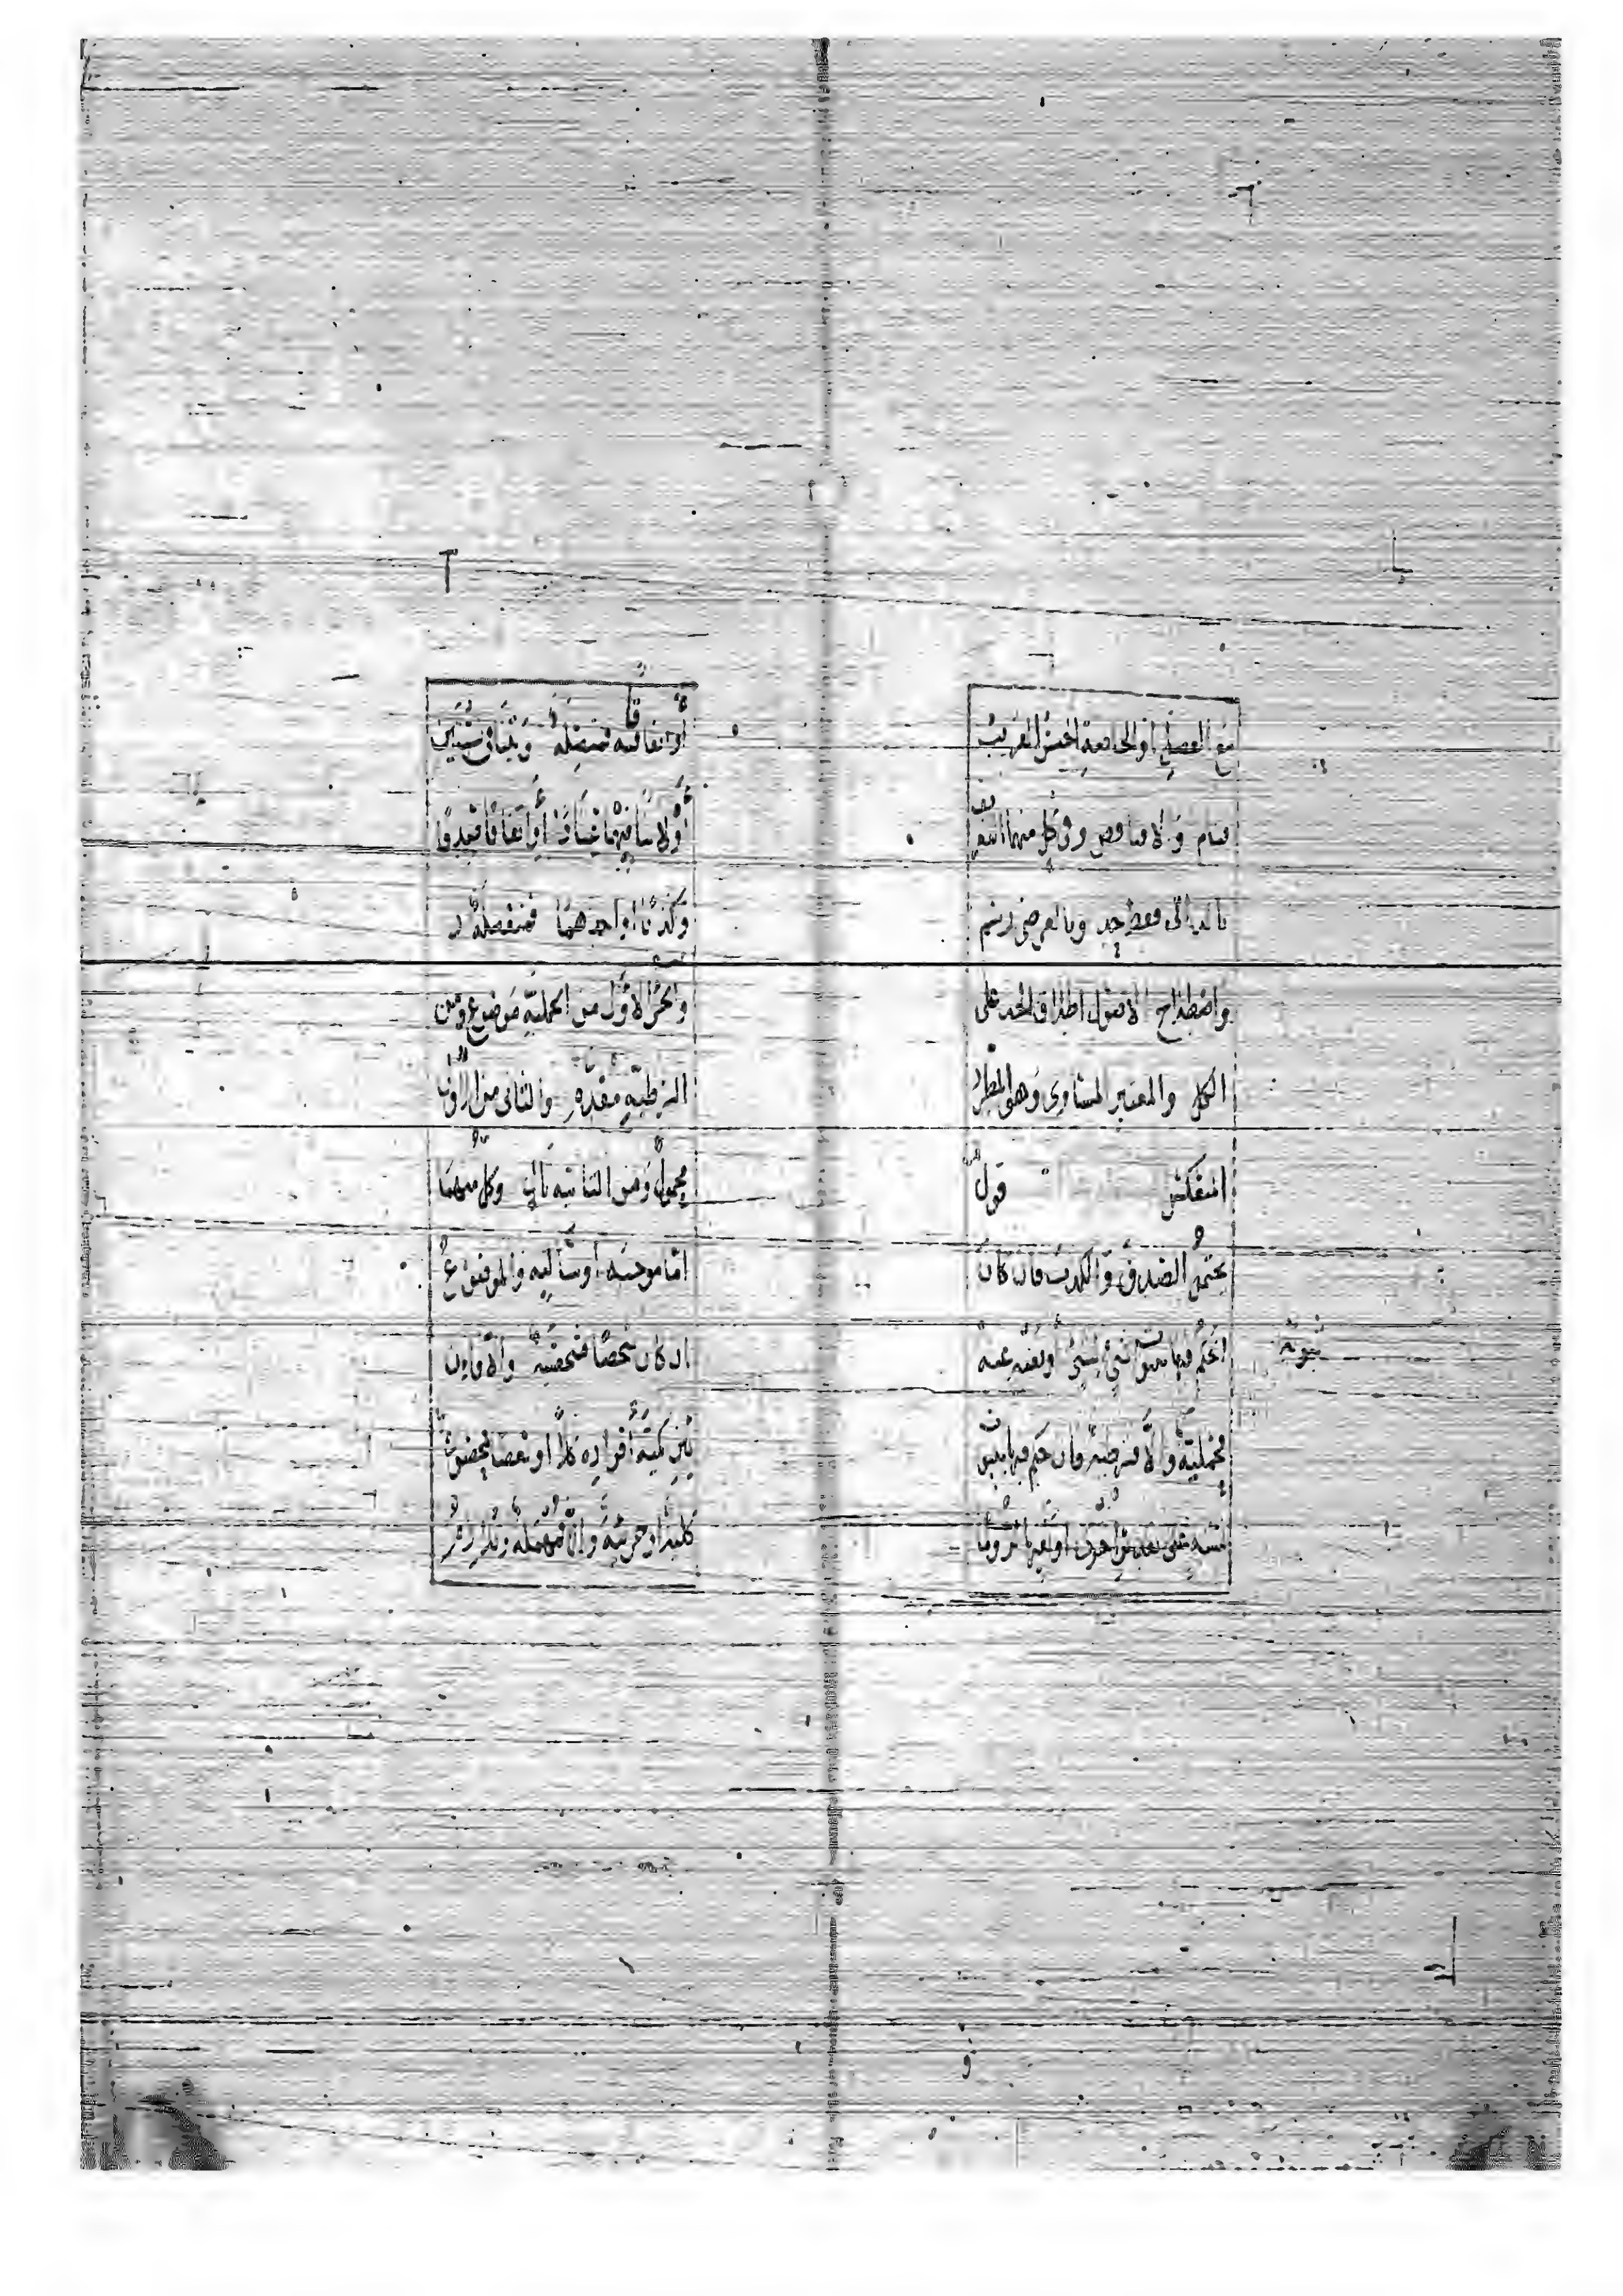 مع الفصل او الخاصة الجنس القريب
فتام والا فناقص وفي كل منهما ان
بالذاتى فقط حد وبالعرضى رسم
واصطلاح الاصول اطلاق الحد على
الكل والمعتبر المساوى وهو المطرد
المنعكس قول
يحتمل الصدق والكذب فان كان
الحكم فيها بثبوت شئ لشئ او نفيه عنه
فحملية والا فشرطية فان حكم فيها
نسبة على اخرى او نفيها لزوما
ثبوت
او اتفاقا فمتصلة وبتنافى نسبتين
او لا تنافيهما عنادا او اتفاقا صدقا
وكذبا او احدهما فمنفصلة
والجزء الاول من الحملية موضوع ومن
الشرطية مقدم والثانى من الاولى
محمول ومن الثانية تالى وكل منهما
اما موجبة او سالبة والموضوع
ان كان شخصا فشخصية والا فان
بين كمية افراده كلا او بعضا فمحصورة
كلية او جزئية والا فمهملة